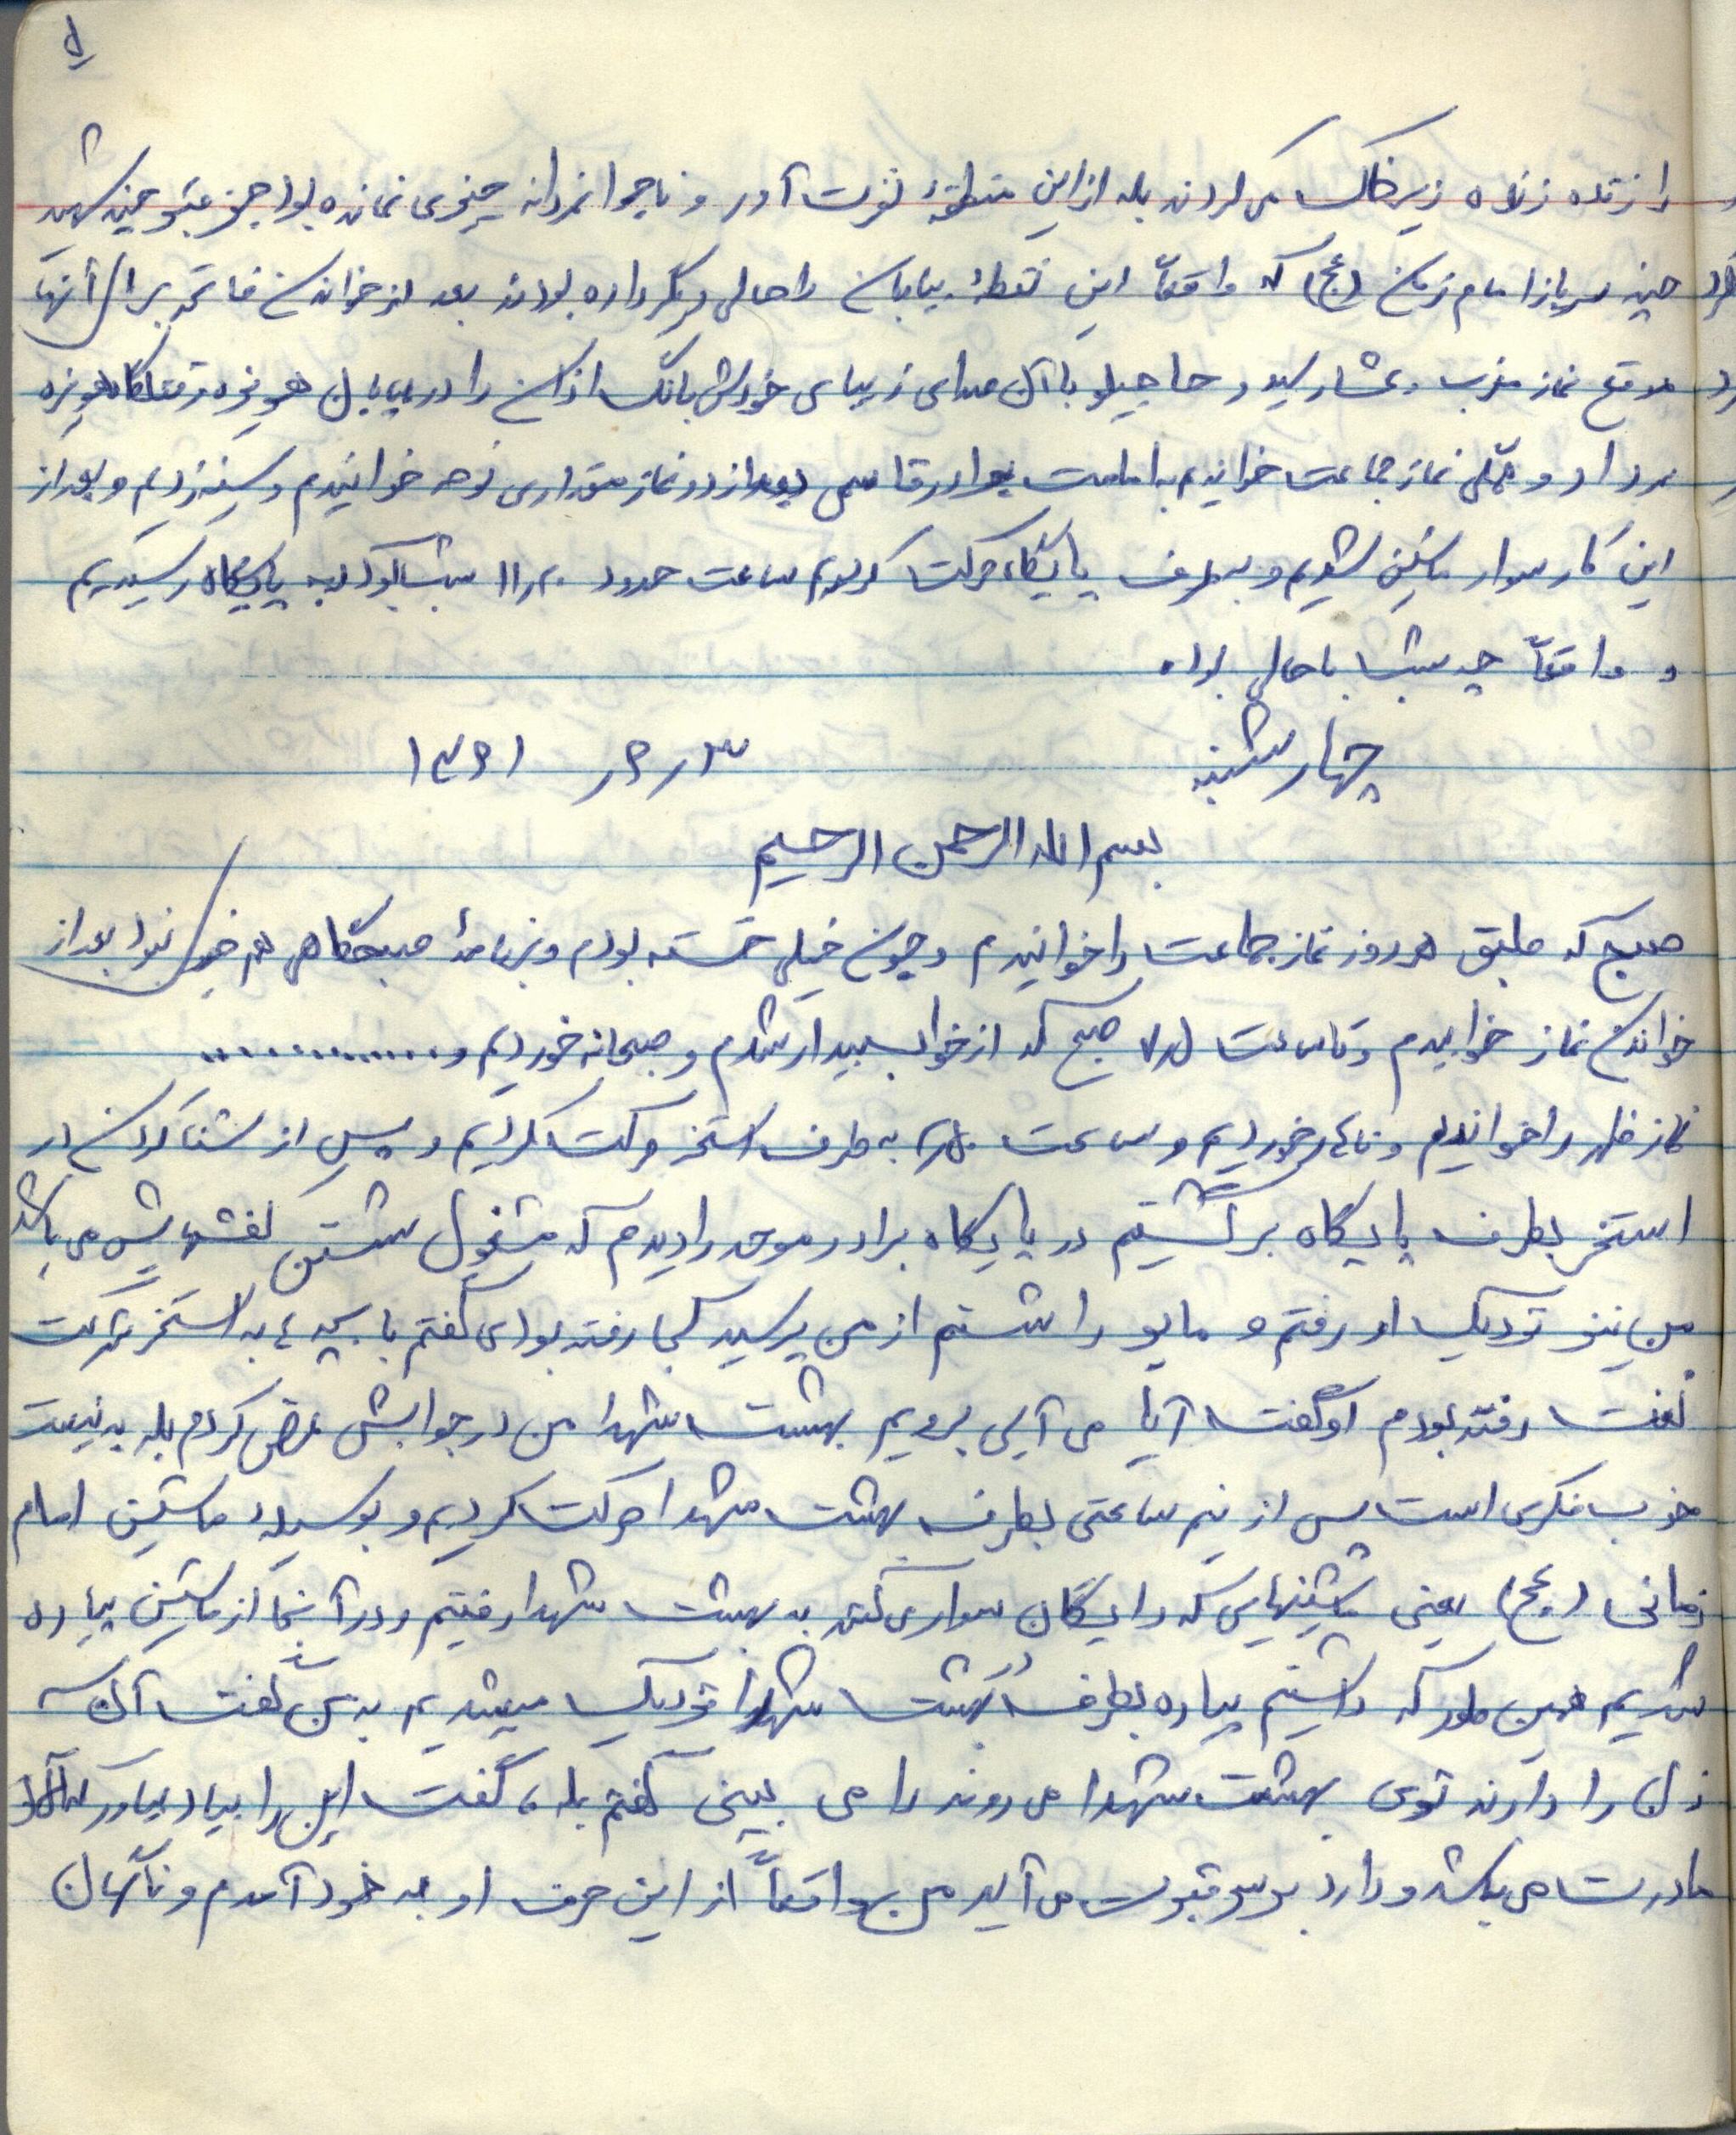 ۵
را زنده زنده زیر خاک می کردند بله از این منطقهٔ نفرت آور و ناجوانمردانه چیزی نمانده بود جز قبو چند شهید
چند سرباز امام زمان (عج) که واقعاً این نقطهٔ بیابان را حالی دیگر داده بودند بعد از خواندن فاتحه برای آنها
موقع نماز مغرب و عشا رسید و حاجیلو با آن صدای زیبای خودش بانگ اذان را در بیابان هویزه و قتلگاه هویزه
برداد و همگی نماز جماعت خواندیم به امامت برادر قاسمی بعد از دو نماز مقداری نوحه خواندیم و سینه زدیم و بعد از
این کار سوار ماشین شدیم و به طرف پایگاه حرکت کردیم ساعت حدود ۱۱٫۲۰ شب بود که به پایگاه رسیدیم
و واقعاً چه شب با حالی بود
چهارشنبه ۳ر۶ر ۱۳۶۱
بسم الله الرحمن الرحیم
صبح که طبق هر روز نماز جماعت را خواندیم و چون خیلی خسته بودم و برنامهٔ صبحگاهی هم خبری نبود بعد از
خواندن نماز خوابیدم و تا ساعت ۷ صبح که از خواب بیدار شدم و صبحانه خوردیم و .............
نماز ظهر را خواندیم و ناهار خوردیم و ساعت به طرف استخر حرکت کردیم و پس از شنا کردن در
استخر بطرف پایگاه برگشتیم در پایگاه برادر موحد را دیدم که مشغول شستن کفشهایش می باشد
من نیز نزدیک او رفتم و مایو را شستم از من پرسید کجا رفته بودی گفتم با بچه ها به استخر شرکت
نفت رفته بودم او گفت آیا می آیی برویم بهشت شهدا من در جوابش عرض کردم بله بد نیست
خوب فکری است پس از نیم ساعتی بطرف بهشت شهدا حرکت کردیم و بوسیلهٔ ماشین امام
زمانی (عج) یعنی ماشینهایی که رایگان سواری کنند به بهشت شهدا رفتیم و در آنجا از ماشین پیاده
شدیم همین طور که داشتیم پیاده بطرف در بهشت شهدا نزدیک میشدیم به من گفت آن سه
زن را دارند توی بهشت شهدا می روند را می بینی گفتم بله، گفت این را بیاد بیاور که
مادرت می باشد و دارد بر سر قبرت می آید من واقعاً از این حرف او به خود آمدم و ناگهان